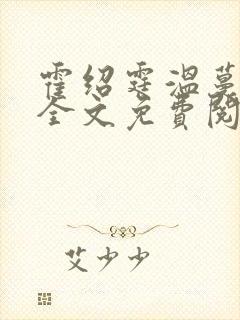 霍绍霆温蔓
全文免费阅
艾少少